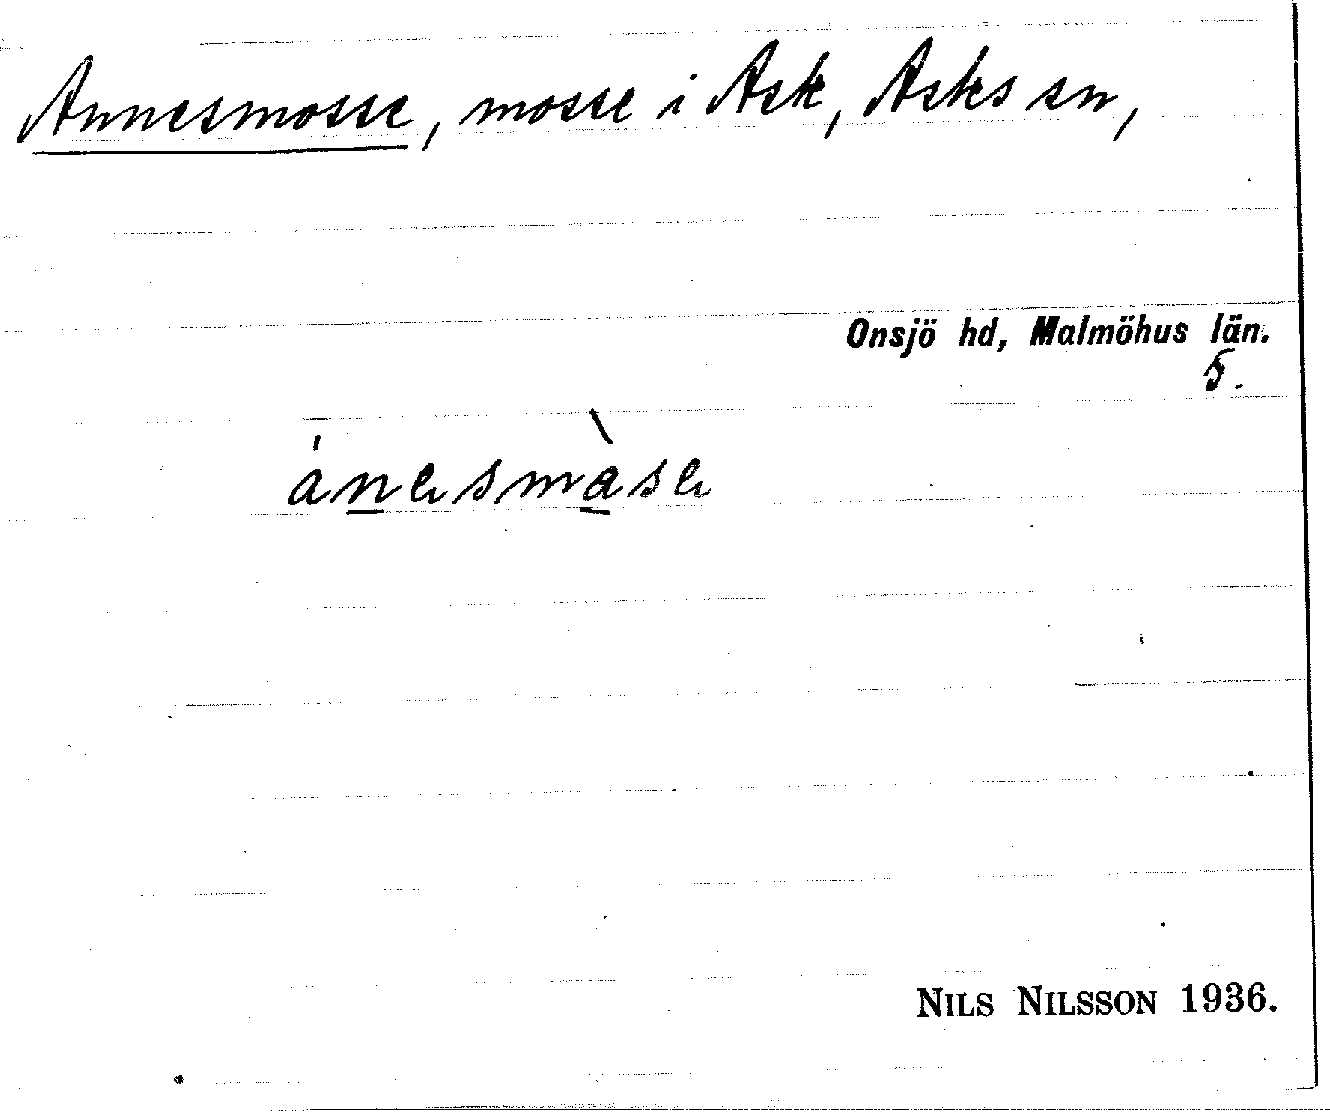 Annesmosse, mosse i Ask, Asks sn,
Onsjö hd, Malmöhus län.
5.
ánesmàse
NILS NILSSON 1936.